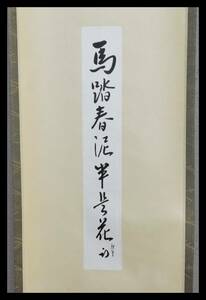 馬踏春泥半是花